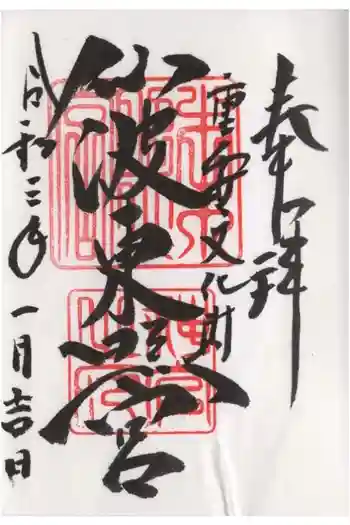 奉拝
重要文化財
仙波東照宮
令和三年一月吉日